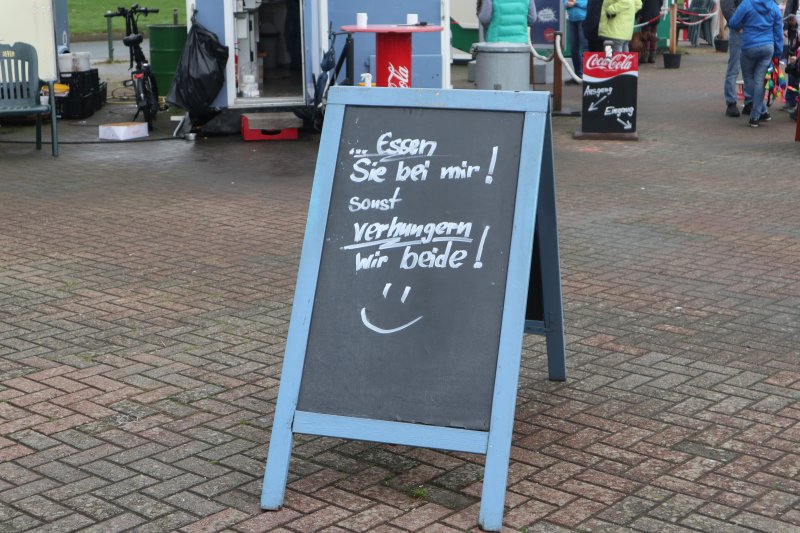 ... Essen
Sie bei mir!
sonst
verhungern
wir beide!
Coca-Cola
Ausgang
Eingang
Coca